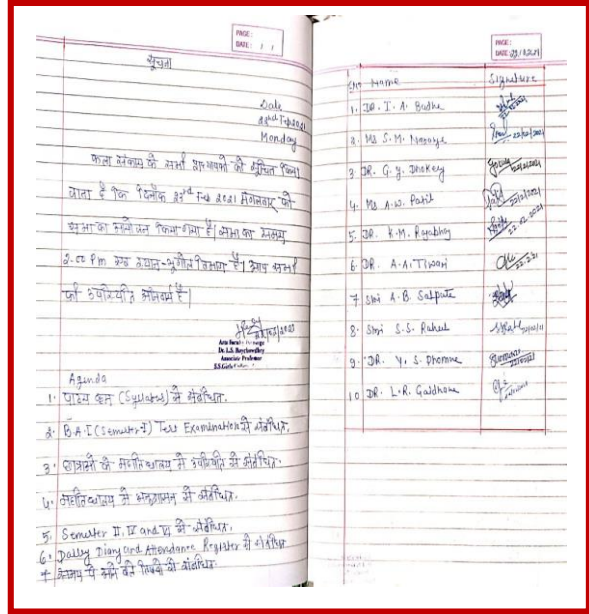 PAGE :
DATE : / /
सूचना
Date
22nd Feb 2021
Monday
कला संकाय के सभी प्राध्यापको को सूचित किया
जाता है कि दिनांक 23rd Feb 2021 मंगलवार को
सभा का आयोजन किया गया है। सभा का समय
2.00 Pm एवं स्थान - भूगोल विभाग है। आप सभी
की उपस्थिति अनिवार्य है।
Arts Faculty
Dr. L.S. Roychowdhury
Associate Professor
Agenda
1. पाठ्य क्रम (Syllabus) से संबंधित.
2. B.A.I (Semester I) Test Examination से संबंधित.
3. छात्राओं की महाविद्यालय में उपस्थिति से संबंधित.
4. महाविद्यालय में अनुशासन से संबंधित.
5. Semester II, IV and VI से संबंधित.
6. Dailly Diary and Attendance Register से संबंधित
7. समय पे आने वाले विषयो से संबंधित.
PAGE :
DATE :
Name Signature
1. DR. I. A. Budhe
2. Ms S. M. 22/02/2021
3. DR. G. Y. Dhokey
4. Ms A. W. Patil
5. DR. K. M.
6. DR. A. A. Tiwari
7 Shri A. B. Satpute
8. Shri S. S. Rahul
9. DR. Y. S. Dhomne
10 DR. L. R. Gaidhane